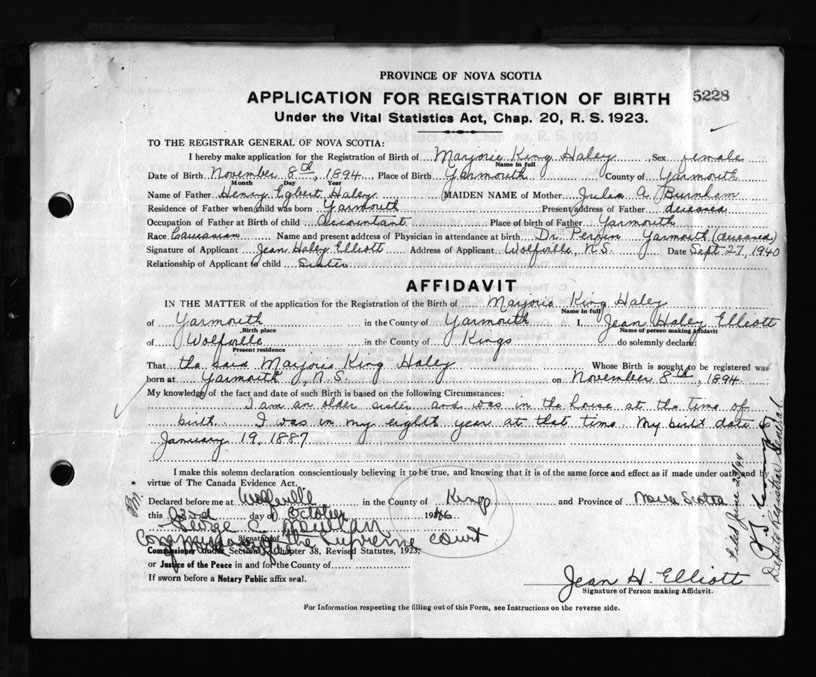 PROVINCE OF NOVA SCOTIA
APPLICATION FOR REGISTRATION OF BIRTH 5228
Under the Vital Statistics Act, Chap. 20, R. S. 1923.
TO THE REGISTRAR GENERAL OF NOVA SCOTIA:
I hereby make application for the Registration of Birth of Marjorie King Haley Sex female
Name in full
Date of Birth November 8th, 1894 Place of Birth Yarmouth County of Yarmouth
Month Day Year
Name of Father Henry Egbert Haley MAIDEN NAME of Mother Julia A Burnham
Residence of Father when child was born Yarmouth Present address of Father deceased
Occupation of Father at Birth of child Accountant Place of birth of Father Yarmouth
Race Caucasian Name and present address of Physician in attendance at birth Dr. Perrin Yarmouth (deceased)
Signature of Applicant Jean Haley Elliott Address of Applicant Wolfville, N.S. Date Sept 27, 1940
Relationship of Applicant to child Sister
AFFIDAVIT
IN THE MATTER of the application for the Registration of the Birth of Marjorie King Haley
Name in full
of Yarmouth in the County of Yarmouth I, Jean Haley Elliott
Birth place Name of person making Affidavit
of Wolfville in the County of Kings do solemnly declare:
Present residence
That the said Marjorie King Haley Whose Birth is sought to be registered was
born at Yarmouth, N.S. on November 8th, 1894.
My knowledge of the fact and date of such Birth is based on the following Circumstances:
I am an older sister and was in the house at the time of
birth. I was in my eight year at that time. My birth date is
January 19, 1887.
I make this solemn declaration conscientiously believing it to be true, and knowing that it is of the same force and effect as if made under oath and by
virtue of The Canada Evidence Act.
Declared before me at Wolfville in the County of Kings and Province of Nova Scotia
this 23rd day of October 19
George C.
Commissioner of the Supreme Court
Commissioner under Section Chapter 38, Revised Statutes, 1923,
or Justice of the Peace in and for the County of
If sworn before a Notary Public affix seal.
Jean H. Elliott
Signature of Person making Affidavit.
For Information respecting the filling out of this Form, see Instructions on the reverse side.
Filed June
Deputy Registrar General